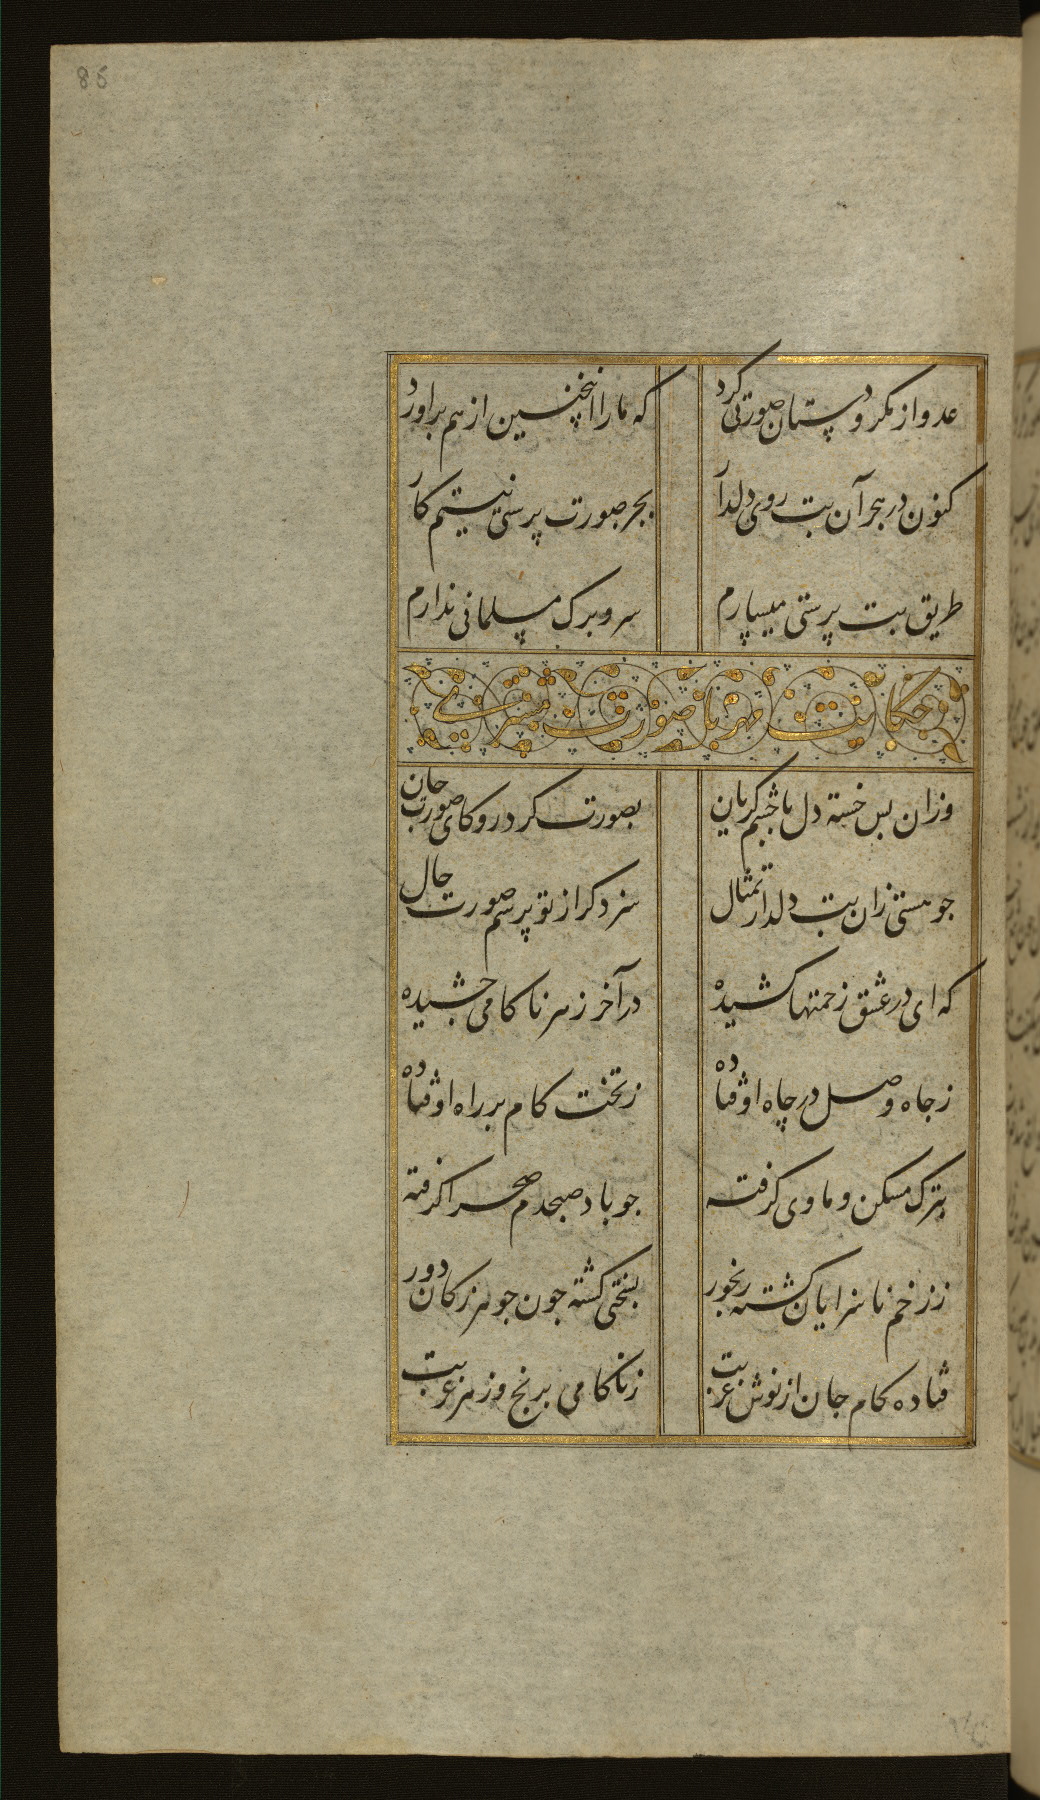 86
عدو از مکر و دستان صورتی کرد
که ما را اینچنین از هم براورد
کنون در هجر آن بت روی دلدار
بجر صورت پرستی نیستم کار
طریق بت پرستی میسپارم
سر و برک مسلمانی ندارم
حکایت مهر با صورت مشتری
وزان بس خسته دل با چشم کریان
بصورت کرد رو کای صورت جان
جو هستی زان بت دلدار تمثال
سزد کر از تو پرسم صورت حال
که ای در عشق زحمتها کشیده
در آخر زهر ناکامی جشیده
ز جاه وصل در چاه اوفتاده
ز تخت کام بر راه اوفتاده
بترک مسکن و ماوی کرفته
جو باد صبحدم صحرا کرفته
ز زخم ناسزایان کشته رنجور
بسختی کشته جون جوهر ز کان دور
فتاده کام جان از نوش غربت
ز ناکامی برنج و زهر غربت